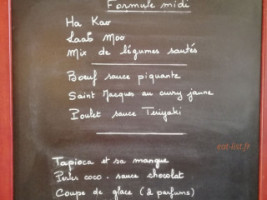 Formule midi
Ha Kao
Laab Moo
Mix de légumes sautés
Bœuf sauce piquante
Saint Jacques au curry jaune
Poulet sauce Teriyaki
Tapioca et sa mangue
Perles coco. sauce chocolat
Coupe de glace (2 parfums)